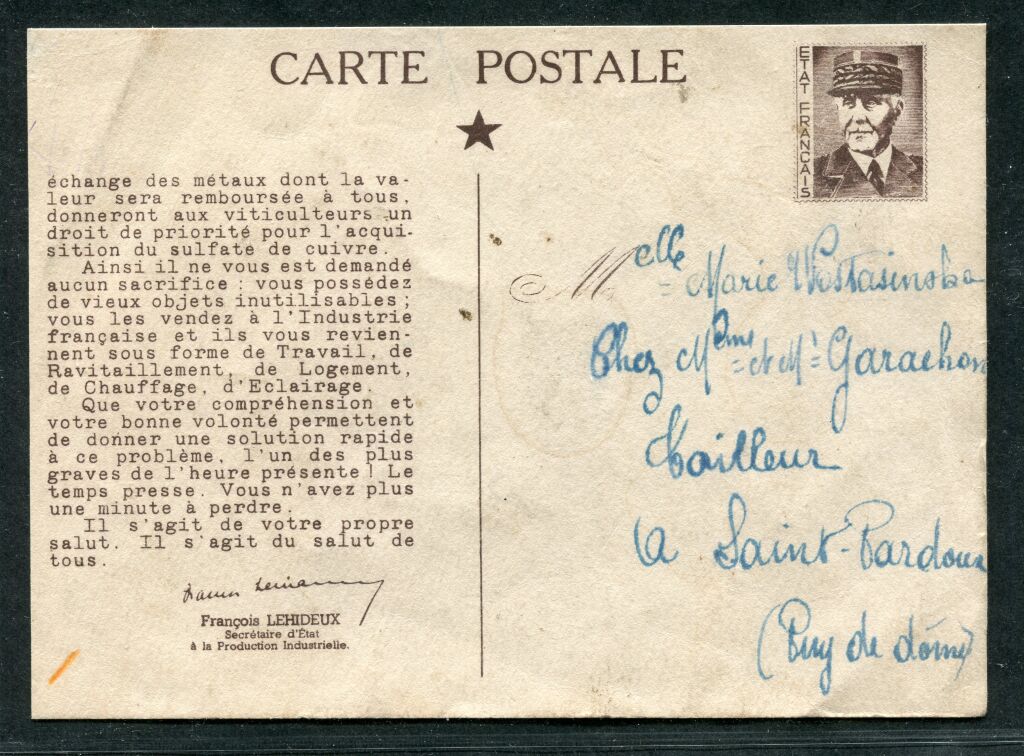 CARTE POSTALE
ETAT FRANCAIS
échange des métaux dont la va-
leur sera remboursée à tous,
donneront aux viticulteurs un
droit de priorité pour l'acqui-
sition du sulfate de cuivre.
Ainsi il ne vous est demandé
aucun sacrifice : vous possédez
de vieux objets inutilisables ;
vous les vendez à l'Industrie
française et ils vous revien-
nent sous forme de Travail, de
Ravitaillement, de Logement,
de Chauffage, d'Eclairage.
Que votre compréhension et
votre bonne volonté permettent
de donner une solution rapide
à ce problème, l'un des plus
graves de l'heure présente ! Le
temps presse. Vous n'avez plus
une minute à perdre.
Il s'agit de votre propre
salut. Il s'agit du salut de
tous.
François LEHIDEUX
Secrétaire d'État
à la Production Industrielle.
Melle Marie
Chez Mme et Mr Garachon
Tailleur
a Saint-Pardoux
(Puy de dôme)